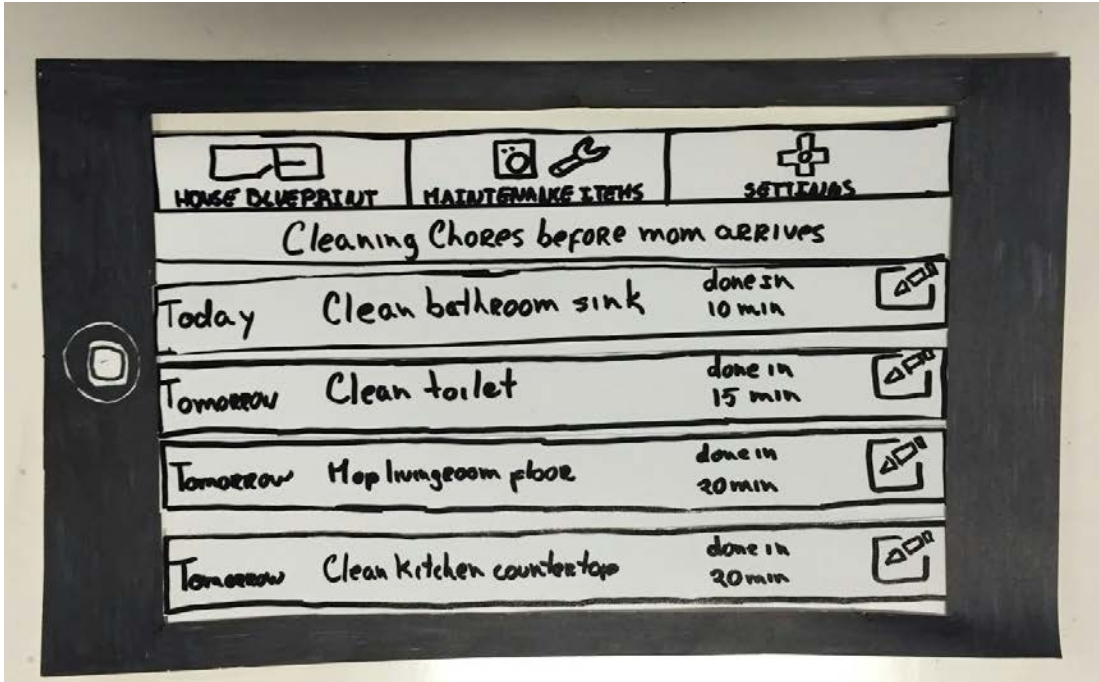 HOUSE BLUEPRINT
MAINTENANCE ITEMS
SETTINGS
Cleaning Chores before mom arrives
Today Clean bathroom sink done in 10 min
Tomorrow Clean toilet done in 15 min
Tomorrow Mop livingroom floor done in 20 min
Tomorrow Clean kitchen countertop done in 20 min